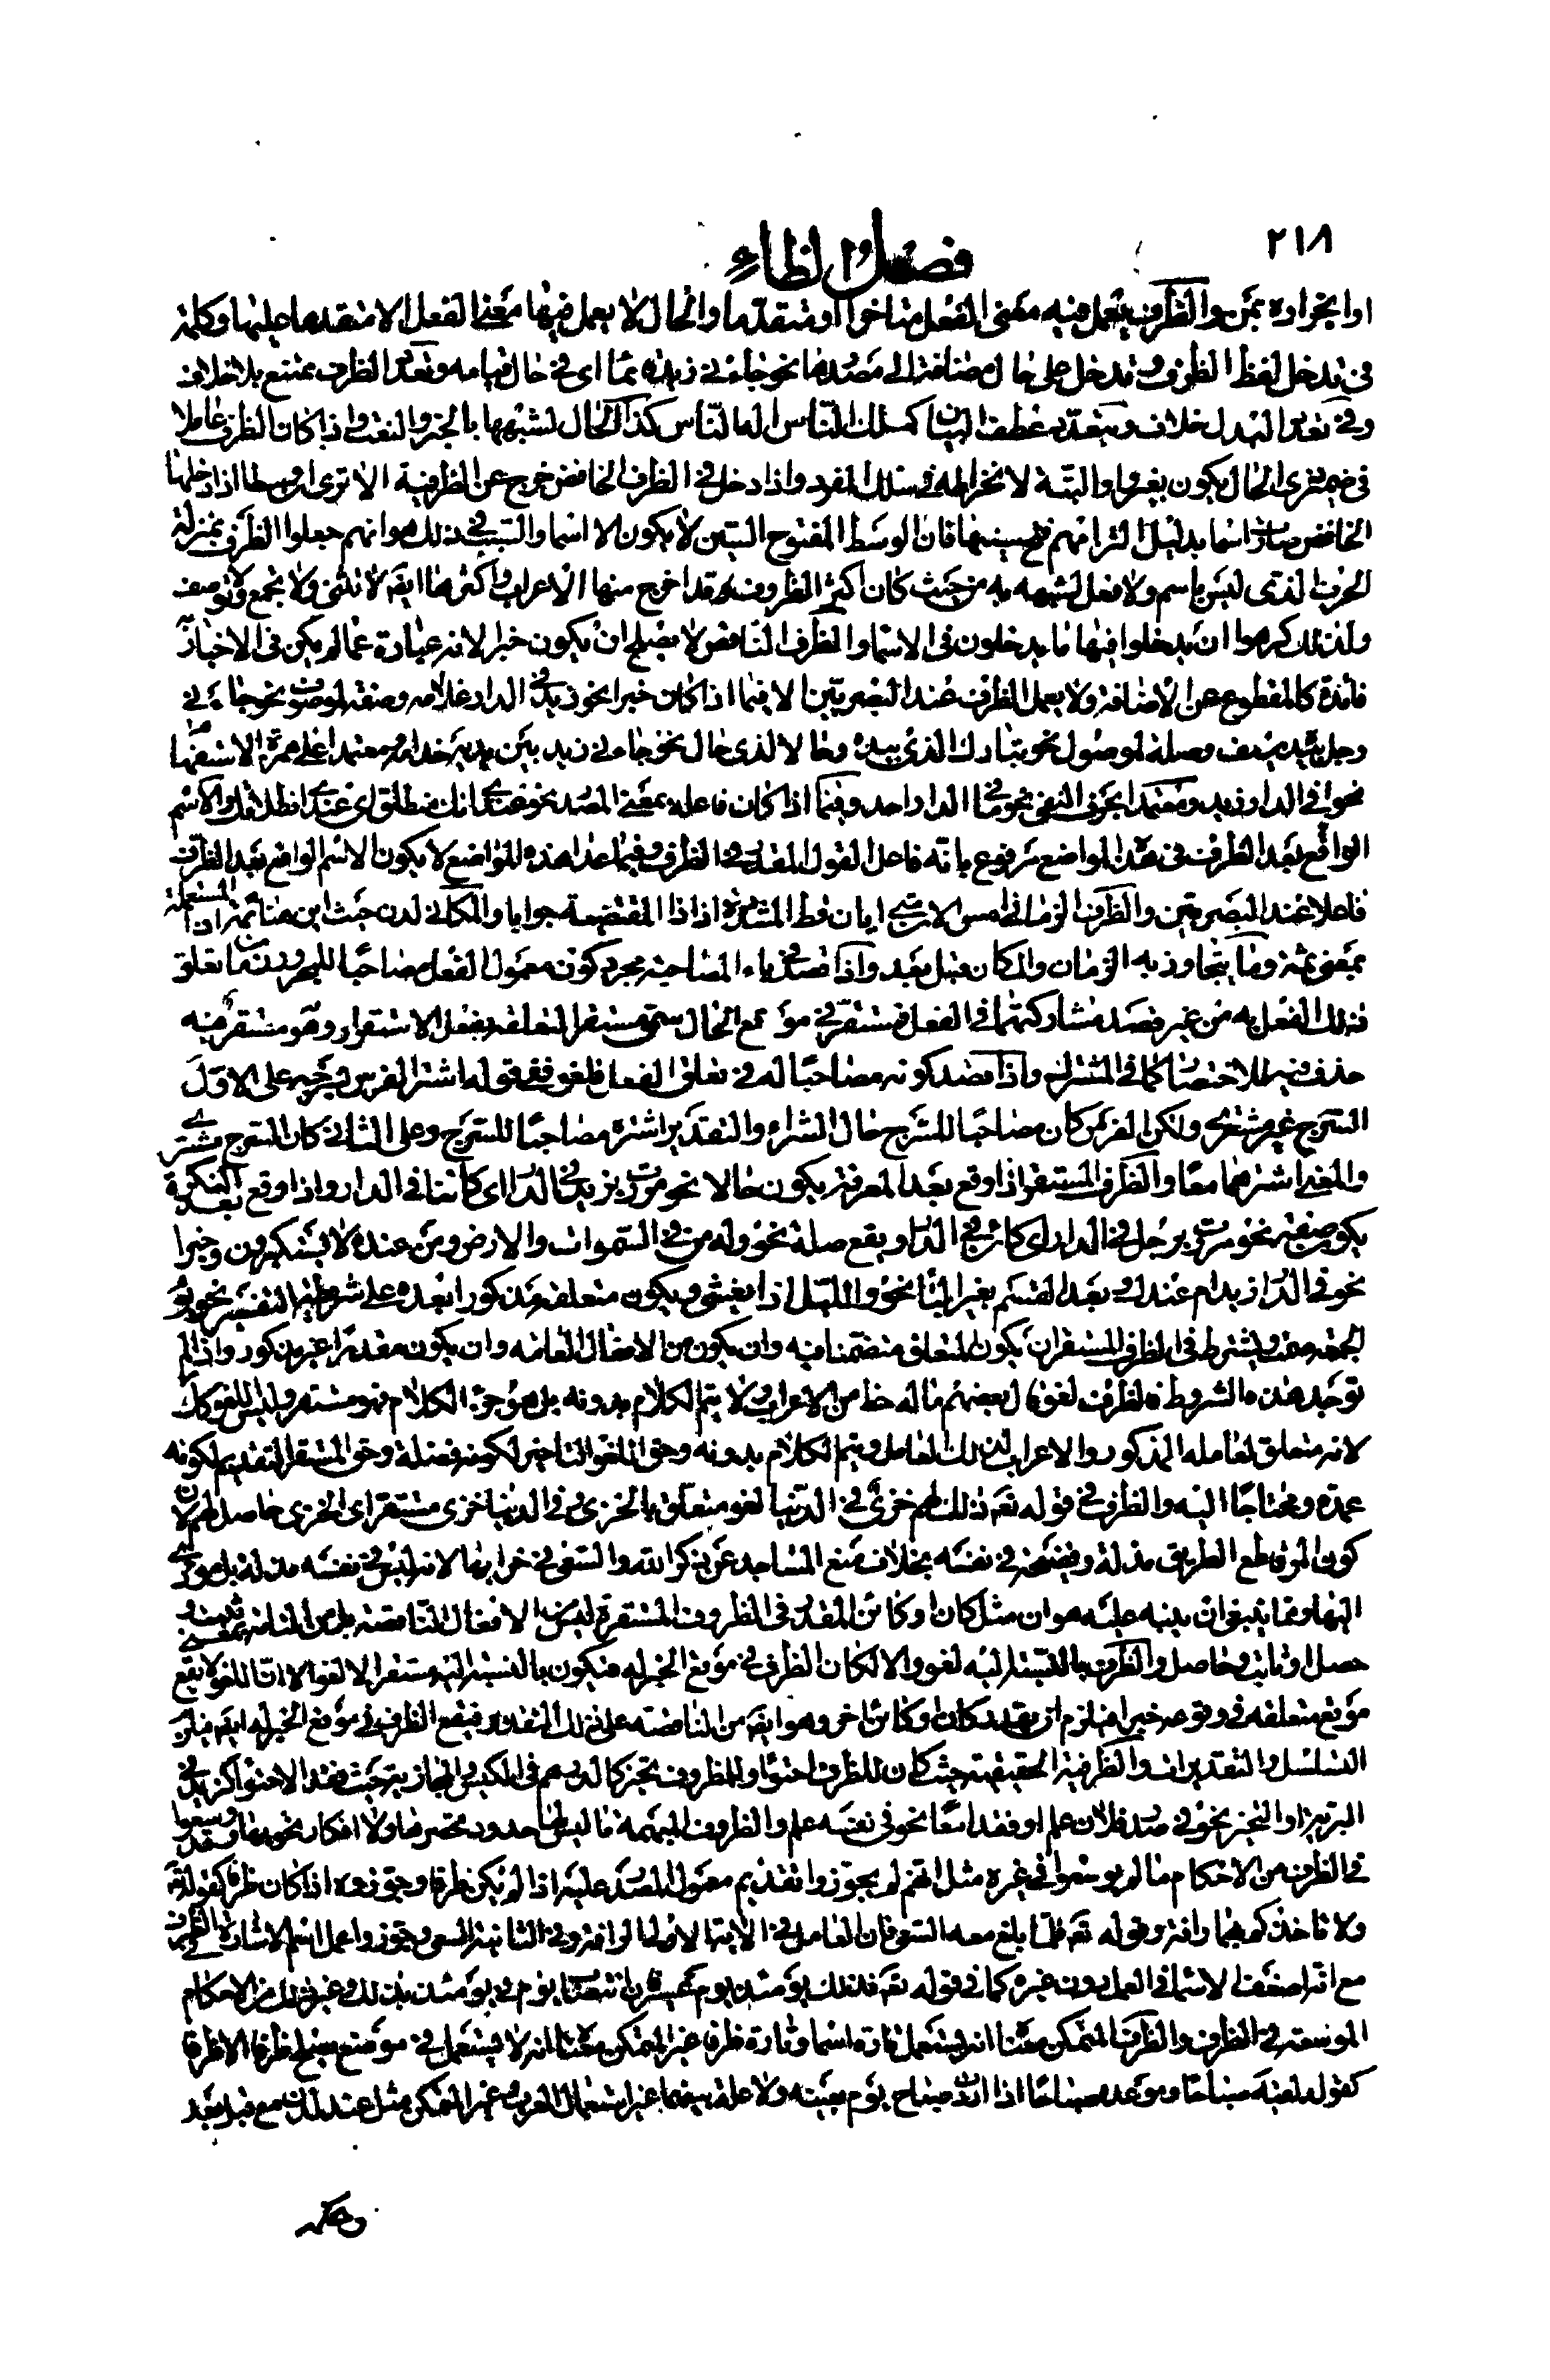 ٢١٨
فصل الظاء
او انجراره بمن والظرف يعمل فيه معنى الفعل متاخرا او متقدما والحال لا يعمل فيها معنى الفعل الا متقدما عليها وكلمة
في تدخل لفظ الظرف وتدخل على حال مضافة الى مصدرها نحو جاءني زيد قائما اي في حال قيامه وتعدد الظرف ممتنع بلا خلاف
وفي تعدد البدل خلاف ويتعدد عطف البيان كملك الناس اله الناس كذا الحال لشبهها بالخبر والنعت واذا كان الظرف عاملا
في ضمير ذي الحال يكون بغير واو البتة لانخراطه في سلك المفرد واذا دخل في الظرف الخافض خرج عن الظرفية الا ترى ان وسطا اذا دخلها
الخافض صارت اسما بدليل التزامهم فتح سينها فان الوسط المفتوح السين لا يكون الا اسما والسبب في ذلك هو انهم جعلوا الظرف بمنزلة
الحرف الذي ليس باسم ولا فعل لشبهه به من حيث كان اكثر الظروف قد اخرج منها الاعراب واكثرها ايضا لا تثنى ولا تجمع ولا توصف
ولذلك كرهوا ان يدخلوا فيها ما يدخلون في الاسماء والظرف الناقص لا يصلح ان يكون خبرا لانه عبارة عما لم يكن في الاخبار به
فائدة كالمقطوع عن الاضافة ولا يعمل الظرف عند البصريين الا فيما اذا كان خبرا نحو زيد في الدار غلامه وصفة لموصوف نحو جاءني
رجل بيده سيف وصلة لموصول نحو تبارك الذي بيده وحالا لذي حال نحو جاءني زيد بين يديه خدامه ومعتمدا على همزة الاستفهام
نحو افي الدار زيد ومعتمدا بحرف النفي نحو ما في الدار احد وفيما اذا كان فاعله بمعنى المصدر نحو عندي انك منطلق اي عندي انطلاقك والاسم
الواقع بعد الظرف في هذه المواضع مرفوع بانه فاعل لفعل المقدر في الظرف وفيما عدا هذه المواضع لا يكون الاسم الواقع بعد الظرف
فاعلا عند البصريين والظرف الزماني امس الان متى ايان قط المشددة اذ اذا المقتضية جوابا والمكاني لدن حيث اين هنا ثمة اذا المستعملة
بمعنى ثمة وما يتجاوز به الزمان والمكان قبل بعد واذا قصد في باء المصاحبة مجرد كون معمول الفعل مصاحبا للمجرور زمان تعلق
ذلك الفعل به من غير قصد مشاركتهما في الفعل فمستقر في موضع الحال سمى مستقرا لتعلقه بفعل الاستقرار وهو مستقر فيه
حذف فيه للاختصار كما في المشترك واذا قصد كونه مصاحبا له في تعلق الفعل فلغو ففي قوله اشتر الفرس بسرجه على الاول
السرج غير مشترى ولكن الفرس كان مصاحبا للسرج حال الشراء والتقدير اشتره مصاحبا للسرج وعلى الثاني كان السرج مشترى
والمعنى اشترهما معا والظرف المستقر اذا وقع بعد المعرفة يكون حالا نحو مررت بزيد في الدار اي كائنا في الدار واذا وقع بعد النكرة
يكون صفة نحو مررت برجل في الدار اي كائن في الدار ويقع صلة نحو وله من في السموات والارض ومن عنده لا يستكبرون وخبرا
نحو في الدار زيد ام عندك وبعد القسم بغير الباء نحو والليل اذا يغشى ويكون متعلقه مذكورا بعده على شريطة التفسير نحو يوم
الجمعة صمت ويشترط في الظرف المستقر ان يكون المتعلق متضمنا فيه وان يكون من الافعال العامة وان يكون مقدرا غير مذكور واذا لم
توجد هذه الشروط فالظرف لغو قال بعضهم ما له حظ من الاعراب ولا يتم الكلام بدونه بل هو جزء الكلام فهو مستقر وليس اللغو كذلك
لانه متعلق لعامله المذكور والاعراب لذلك العامل ويتم الكلام بدونه وحق اللغو التاخير لكونه فضلة وحق المستقر التقديم لكونه
عمدة ومحتاجا اليه والظرف في قوله تعالى ذلك لهم خزي في الدنيا لغو متعلق بالخزي وفي الدنيا خزي مستقر اي الخزي حاصل لهم لان
كون الرق قاطع الطريق مذلة وفضيحة في نفسه بخلاف منع المساجد عن ذكر الله والسعي في خرابها لانه ليس في نفسه مذلة بل مؤدي
اليها ومما ينبغي ان ينبه عليه هو ان مثل كان او كائن المقدر في الظروف المستقرة ليس من الافعال الناقصة بل من التامة بمعنى ثبت و
حصل او ثابت وحاصل والظرف بالنسبة اليه لغو والا لكان الظرف في موقع الخبر له فيكون بالنسبة اليه مستقرا لا لغوا لان اللغو لا يقع
موقع متعلقه في وقوعه خبرا فيلزم ان يقدر كان او كائن اخر وهو ايضا من الناقصة على ذلك التقدير فيقع الظرف في موقع الخبر له ايضا فيلزم
التسلسل والتقديرات والظرفية الحقيقية حيث كان للظرف احتواء وللمظروف تحيز كالدرهم في الكيس والمجازية حيث فقد الاحتواء كزيد في
البرية او التحيز نحو في صدر فلان علم او فقدا معا نحو في نفسه علم والظروف المبهمة ما ليس لها حدود تحصرها ولا اقطار تحويها وقد وسعوا
في الظرف من الاحكام ما لم يوسعوا في غيره مثل انهم لم يجوزوا تقديم معمول المصدر عليه اذا لم يكن ظرفا وجوزوه اذا كان ظرفا كقوله تعالى
ولا تاخذكم بهما رافة وقوله تعالى فلما بلغ معه السعي فان العامل في الاية الاولى الرافة وفي الثانية السعي وجوزوا عمل اسم الاشارة في الظرف
مع انه اضعف الاسماء في العمل دون غيره كما في قوله تعالى فذلك يومئذ يوم عسير فان انتصاب يوم في يومئذ بذلك وغير ذلك من الاحكام
الموسعة في الظرف والظرف المتمكن معناه انه يستعمل تارة اسما وتارة ظرفا غير المتمكن معناه انه لا يستعمل في موضع يصلح ظرفا الا ظرفا
كقوله لقيته صباحا وموعده صباحا اذا اردت صباح يوم بعينه ولا علة بينهما غير استعمال العرب وغير المتمكن مثل عند لدن مع قبل بعد
وحكم